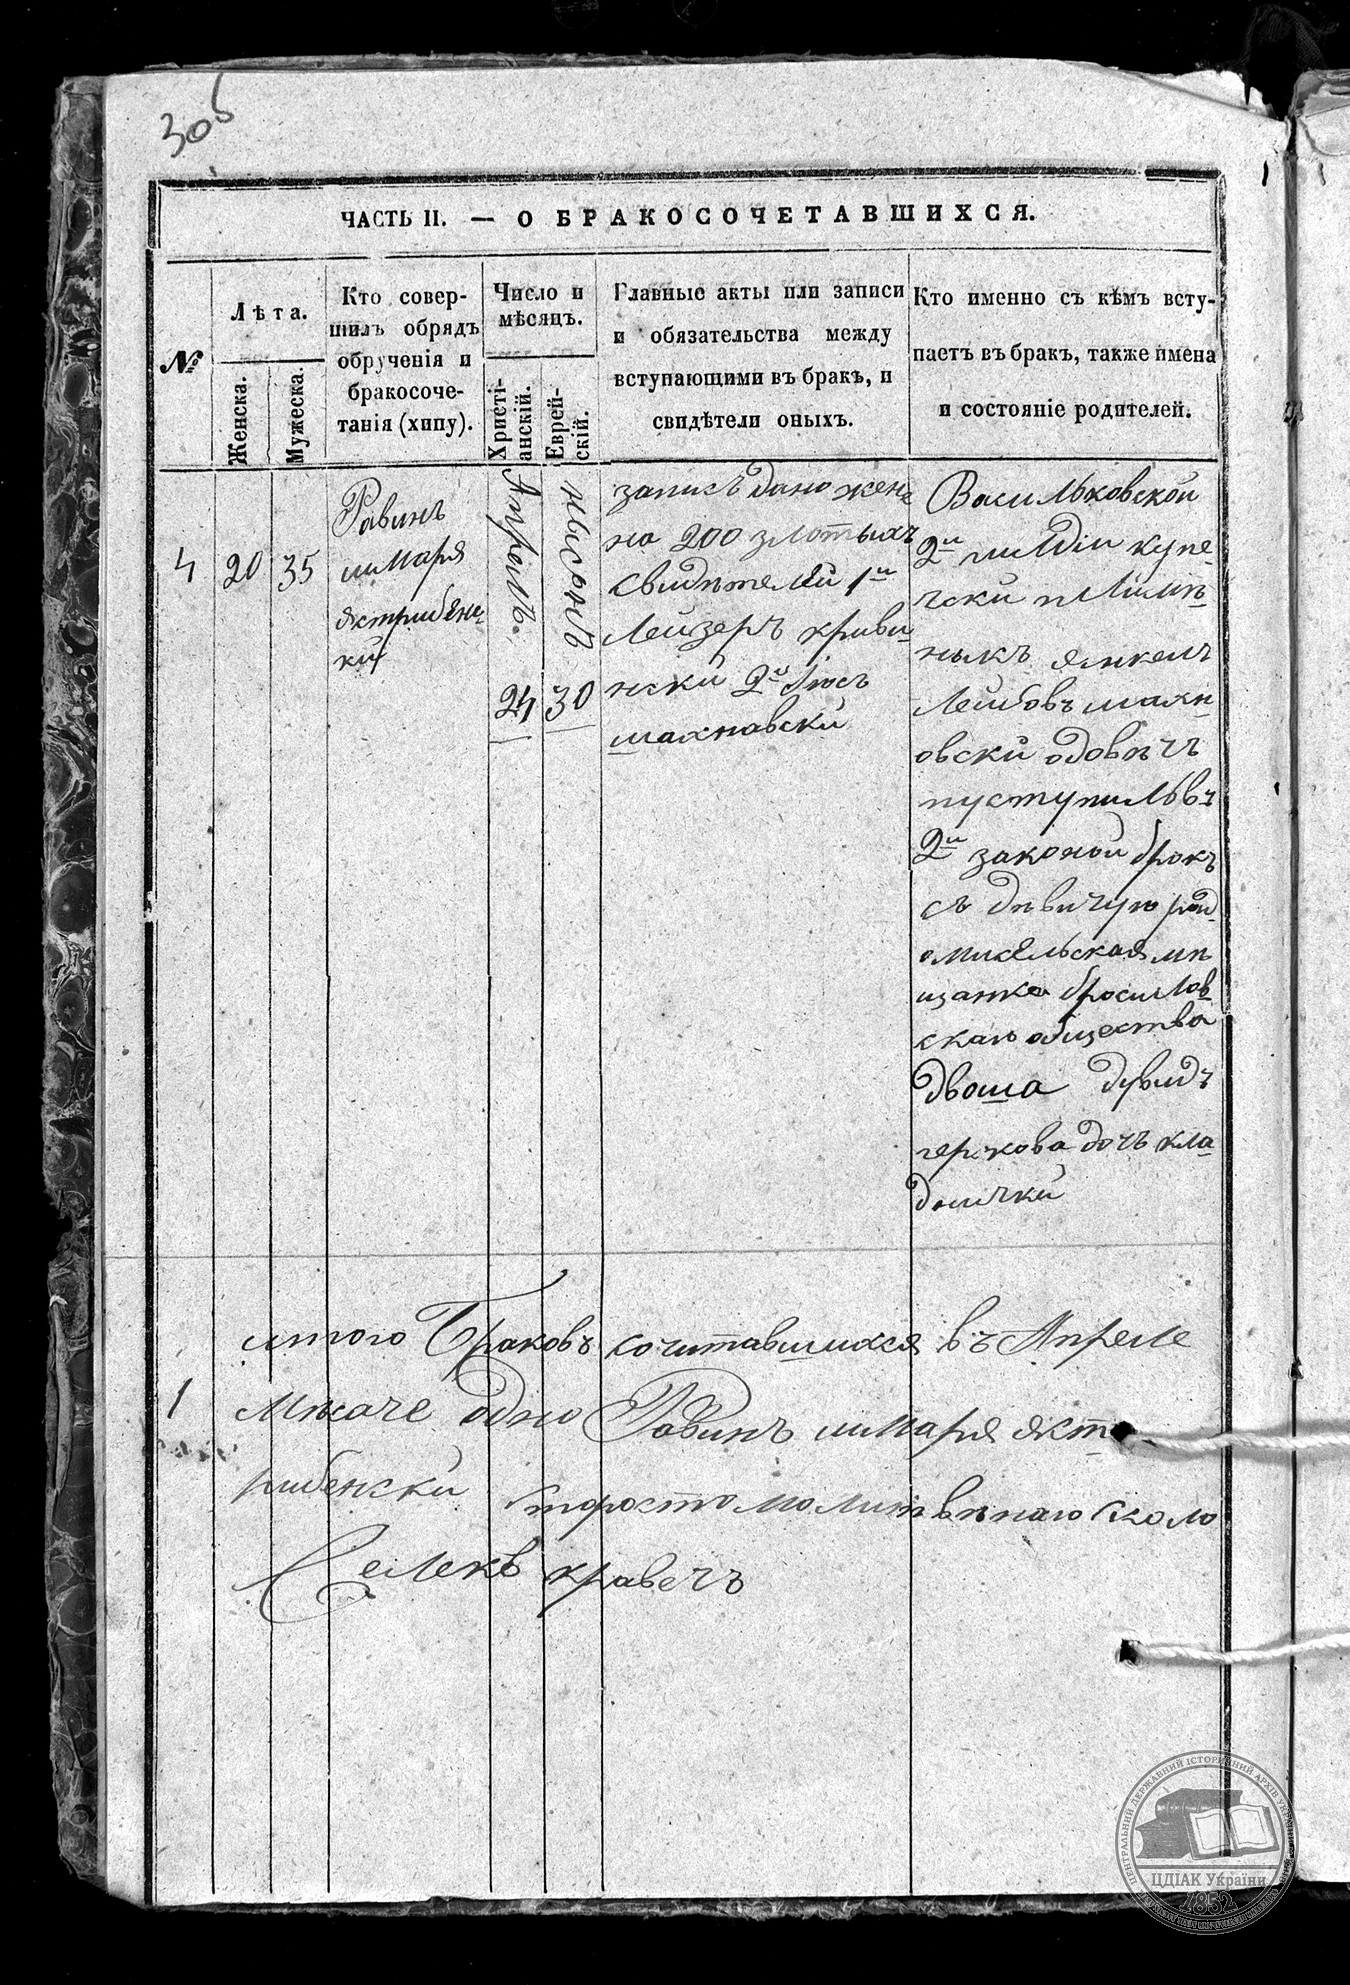 305
ЧАСТЬ II. — О БРАКОСОЧЕТАВШИХСЯ.
№
Лѣта.
Женска.
Мужеска.
Кто совер-
шилъ обрядъ
обрученія и
бракосоче-
танія (хипу).
Число и
мѣсяцъ.
Христі-
анскій.
Еврей-
скій.
Главные акты или записи
и обязательства между
вступающими въ бракъ, и
свидѣтели оныхъ.
Кто именно съ кѣмъ всту-
паетъ въ бракъ, также имена
и состояніе родителей.
4
20
35
Равинъ
шмаря
ястрибенс
кий
Апрелъ
24
нысонъ
30
записъ дано жене
на 200 злотыхъ
свидѣтелей 1й
Лейзеръ криви
нски 2й
махнавски
Васильковской
2й гилдіи купе
чски
янкелъ
Лейбовъ махн
овски одовѣцъ
пуступилъ въ
2й законой брокъ
съ дѣвичую рад
омисельская мѣ
щанка брасилов
скаго общества
двоша дувидъ
герскова дочъ кла
дницкий
итого Браковъ сочитавшихся въ Апреле
1
мѣсаче одно Равинъ шмаря яст
рибенски староста молитвѣнаго школо
кравецъ
ЦЕНТРАЛЬНИЙ ДЕРЖАВНИЙ ІСТОРИЧНИЙ АРХІВ УКРАЇНИ
ЦДІАК України
1852